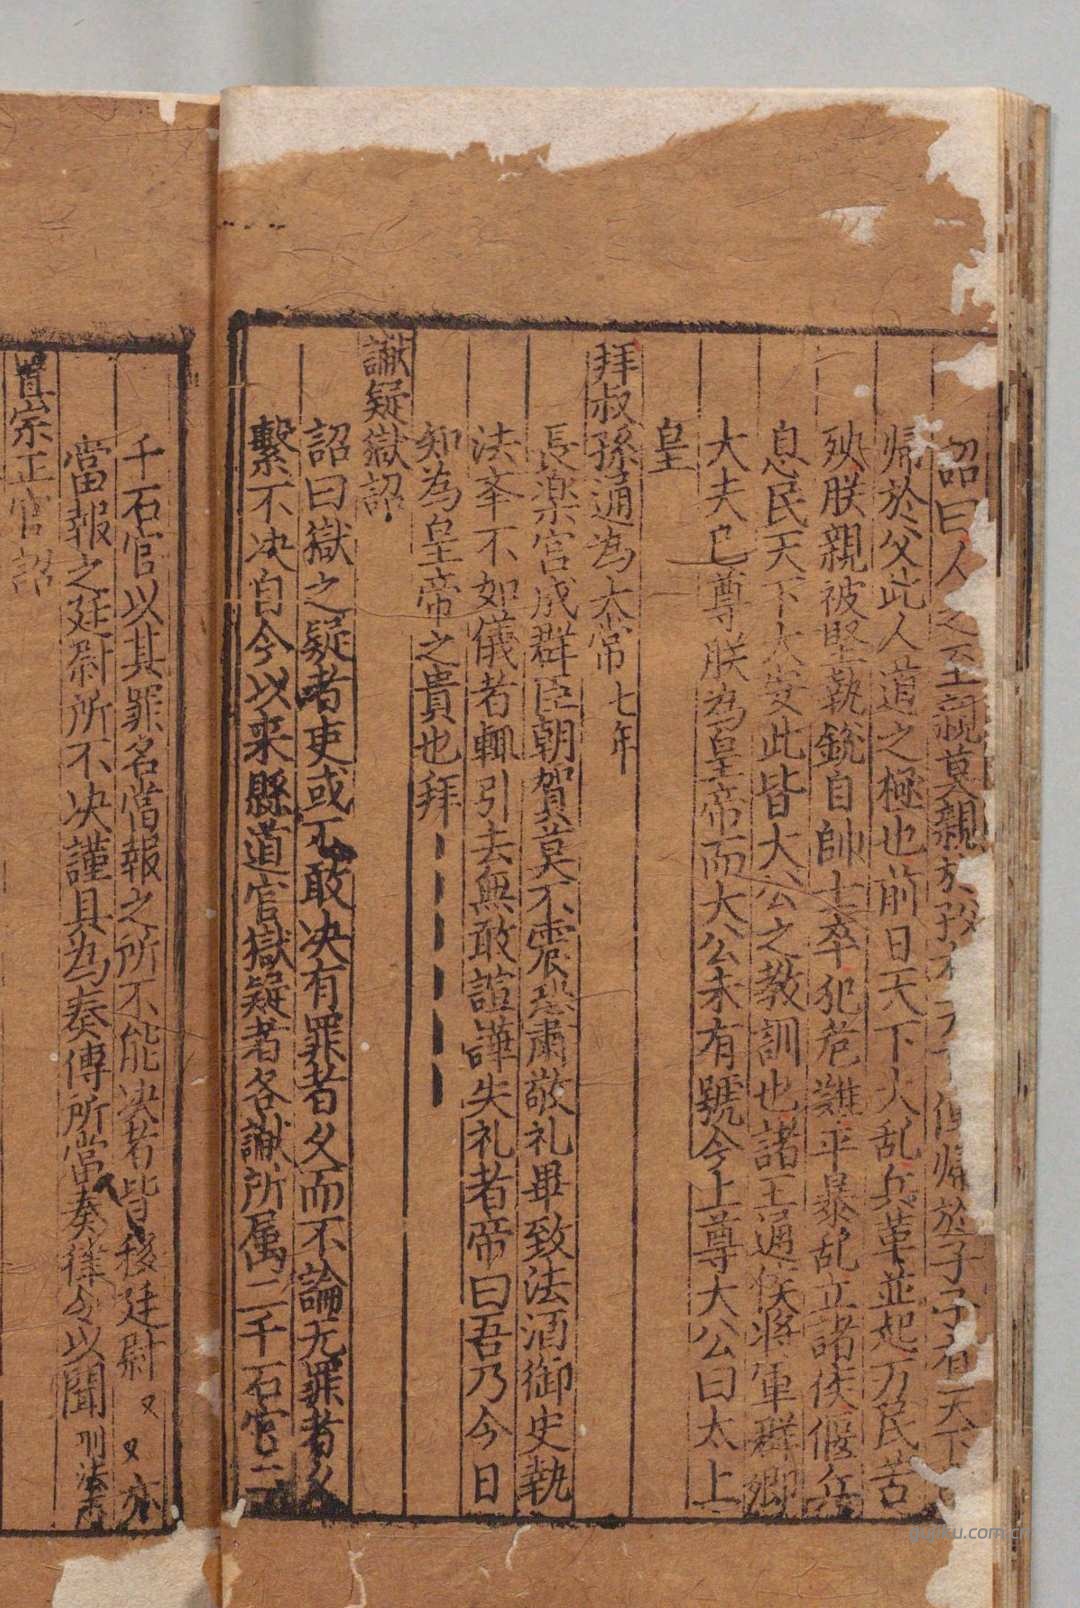 詔曰人之至親莫親於父子故父有天下傳歸於子子有天下
帰於父此人道之極也前日天下大乱兵革並起万民苦
殃朕親被堅執銳自帥士卒犯危難平暴乱立諸侯偃兵
息民天下大安此皆大公之教訓也諸王通侯将軍群卿
大夫已尊朕為皇帝而大公未有號今上尊大公曰太上
皇
拜叔孫通為太常七年
長楽宮成群臣朝賀莫不震恐肅敬礼畢致法酒御史執
法挙不如儀者輒引去無敢諠譁失礼者帝曰吾乃今日
知為皇帝之貴也拜
讞疑獄詔
詔曰獄之疑者吏或不敢决有罪者久而不論无罪者久
繫不决自今以来縣道官獄疑者各讞所属二千石官二
千石官以其罪名當報之所不能决者皆移廷尉又又亦
當報之廷尉所不决謹具為奏傳所當奏律令以聞刑法志
置宗正官詔